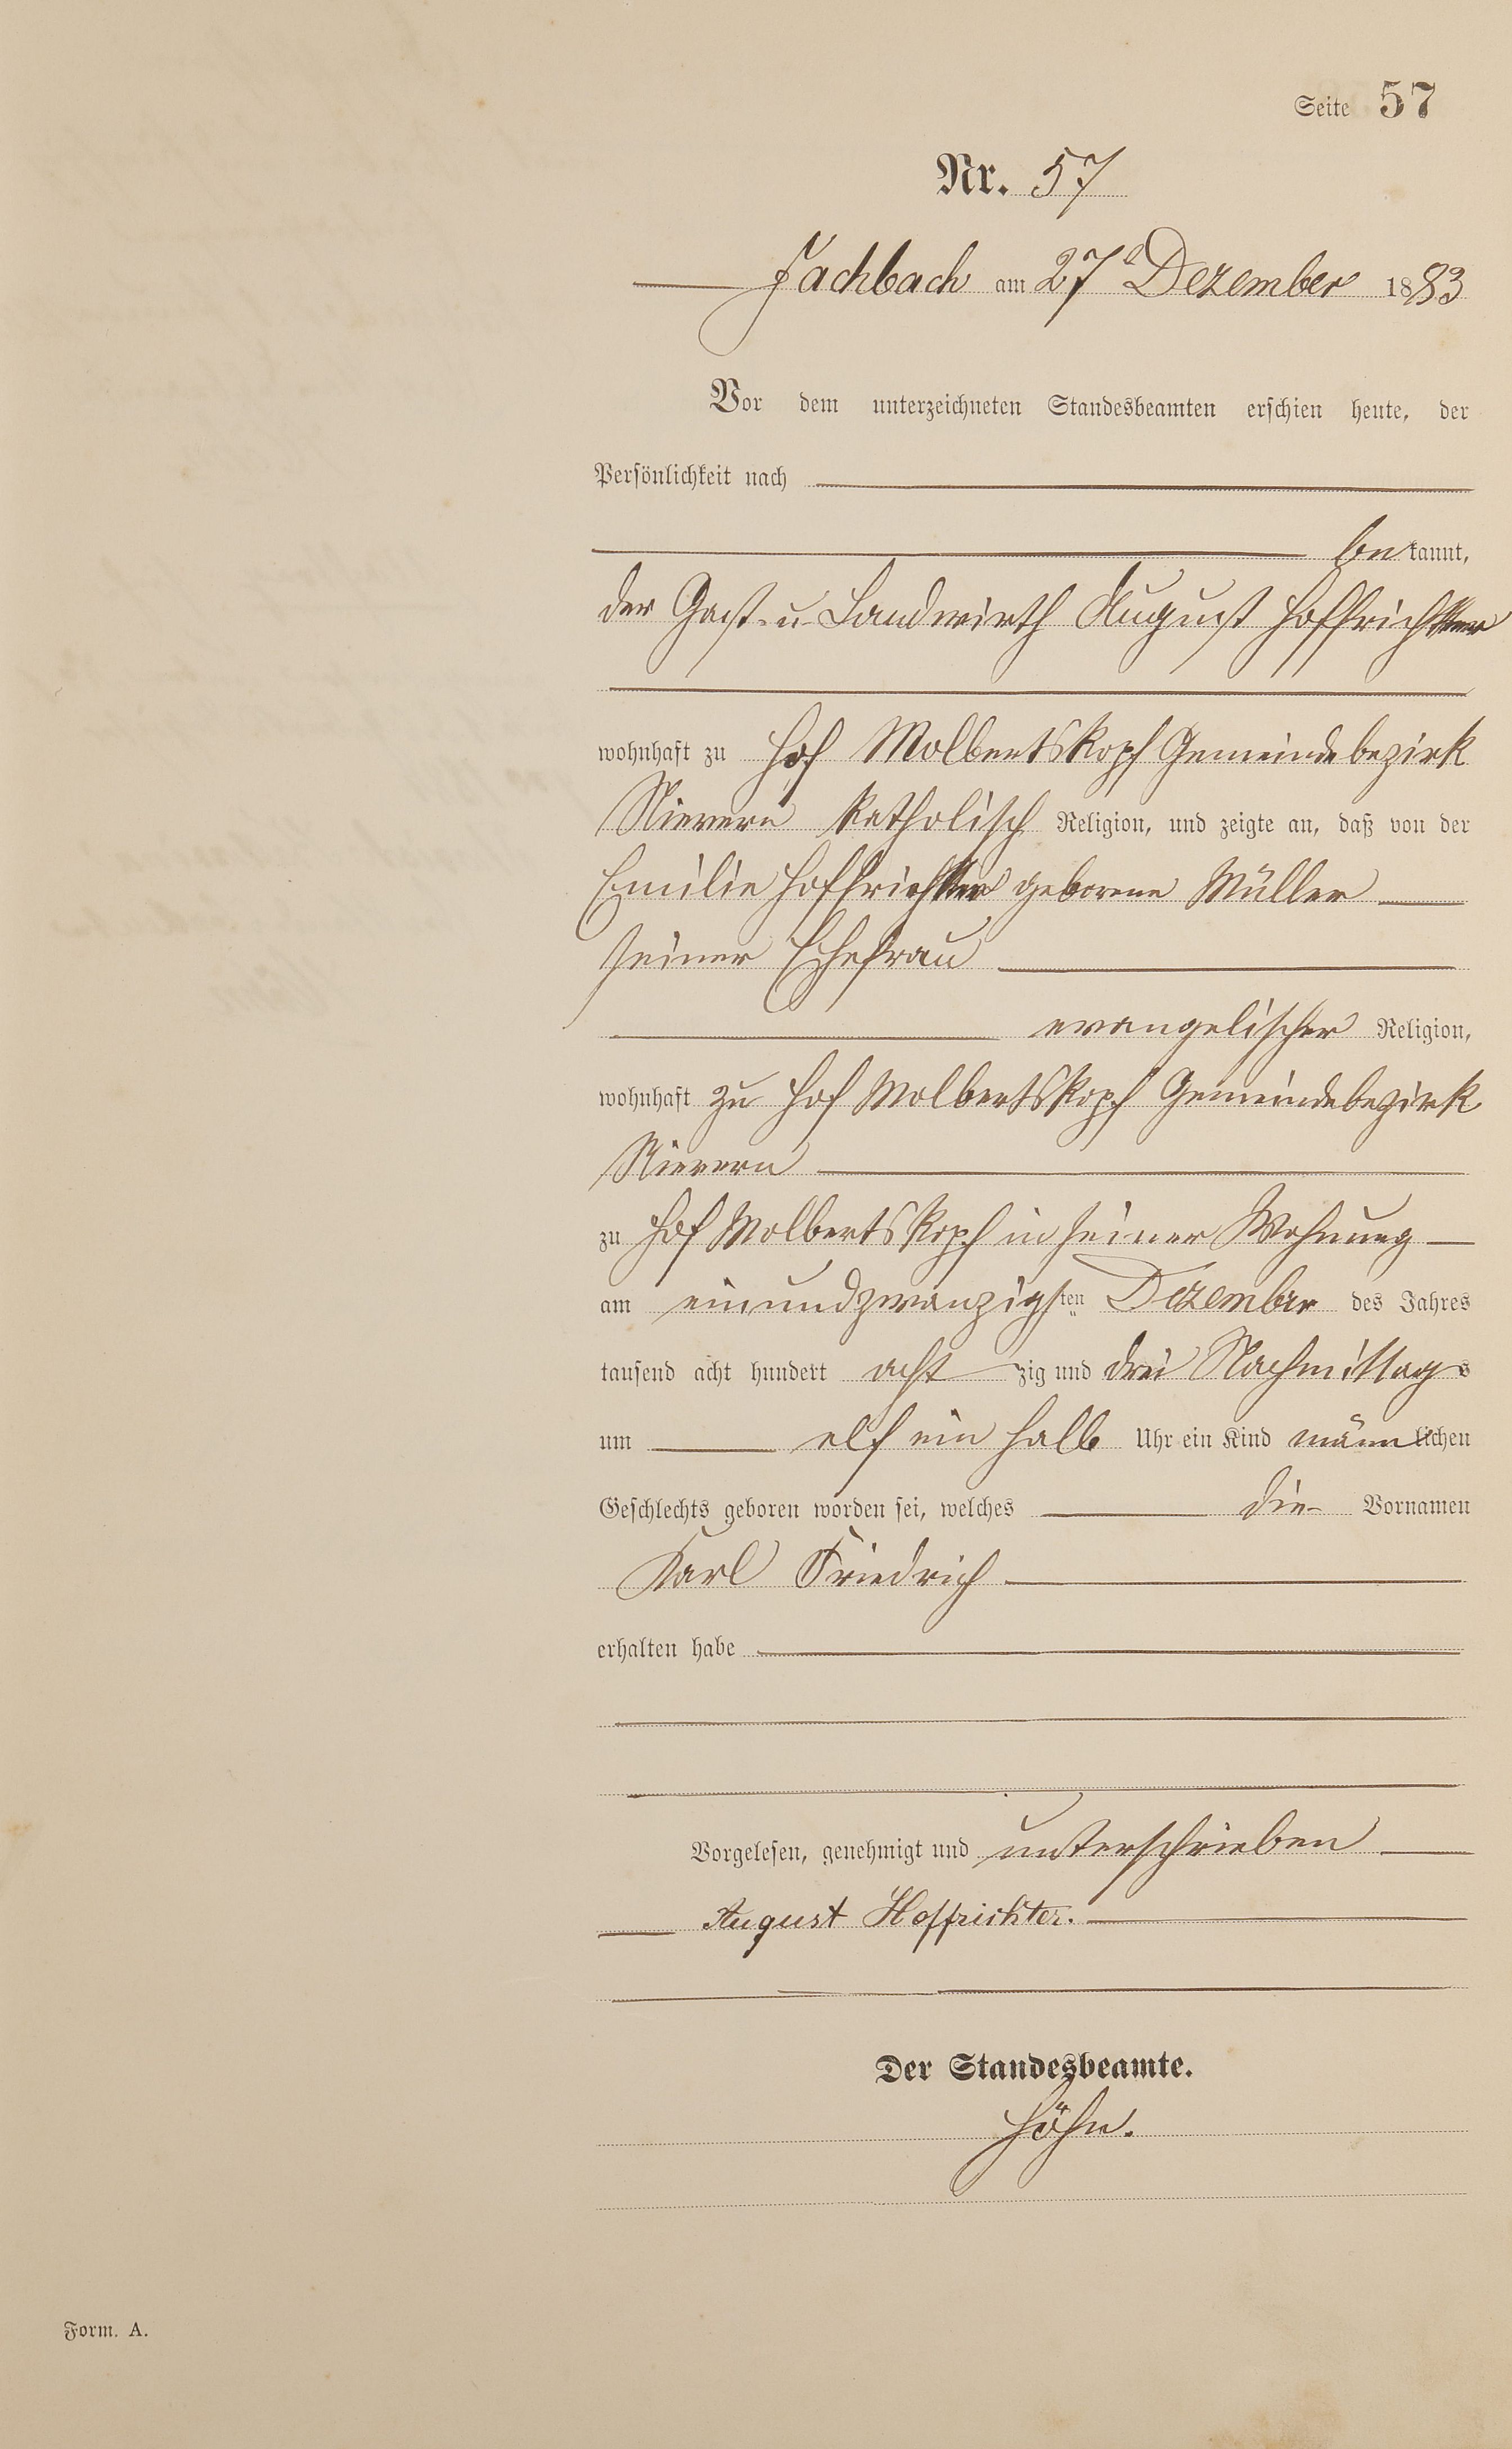 Seite 57
Nr. 57
Fachbach am 27ᵉ Dezember 1883
Vor dem unterzeichneten Standesbeamten erschien heute, der
Persönlichkeit nach
bekannt,
der Gast- u Landwirth August Hoffrichter
wohnhaft zu Hof Molbertskopf Gemeindebezirk
Nievern katholisch Religion, und zeigte an, daß von der
Emilie Hoffrichter geborene Müller
seiner Ehefrau
evangelischer Religion,
wohnhaft zu Hof Molbertskopf Gemeindebezirk
Nievern
zu Hof Molbertskopf in seiner Wohnung
am einundzwanzigsten Dezember des Jahres
tausend acht hundert achtzig und drei Nachmittags
um elf ein halb Uhr ein Kind männlichen
Geschlechts geboren worden sei, welches die Vornamen
Karl Friedrich
erhalten habe
Vorgelesen, genehmigt und unterschrieben
August Hoffrichter.
Der Standesbeamte.
Höhn.
Form. A.